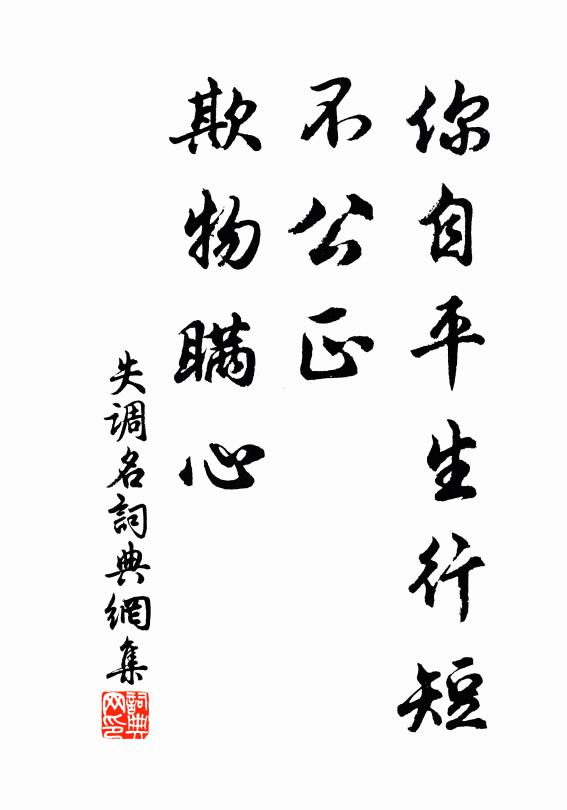 你自平生行短
不公正
欺物瞞心
失调名詞典網集
詞典网印